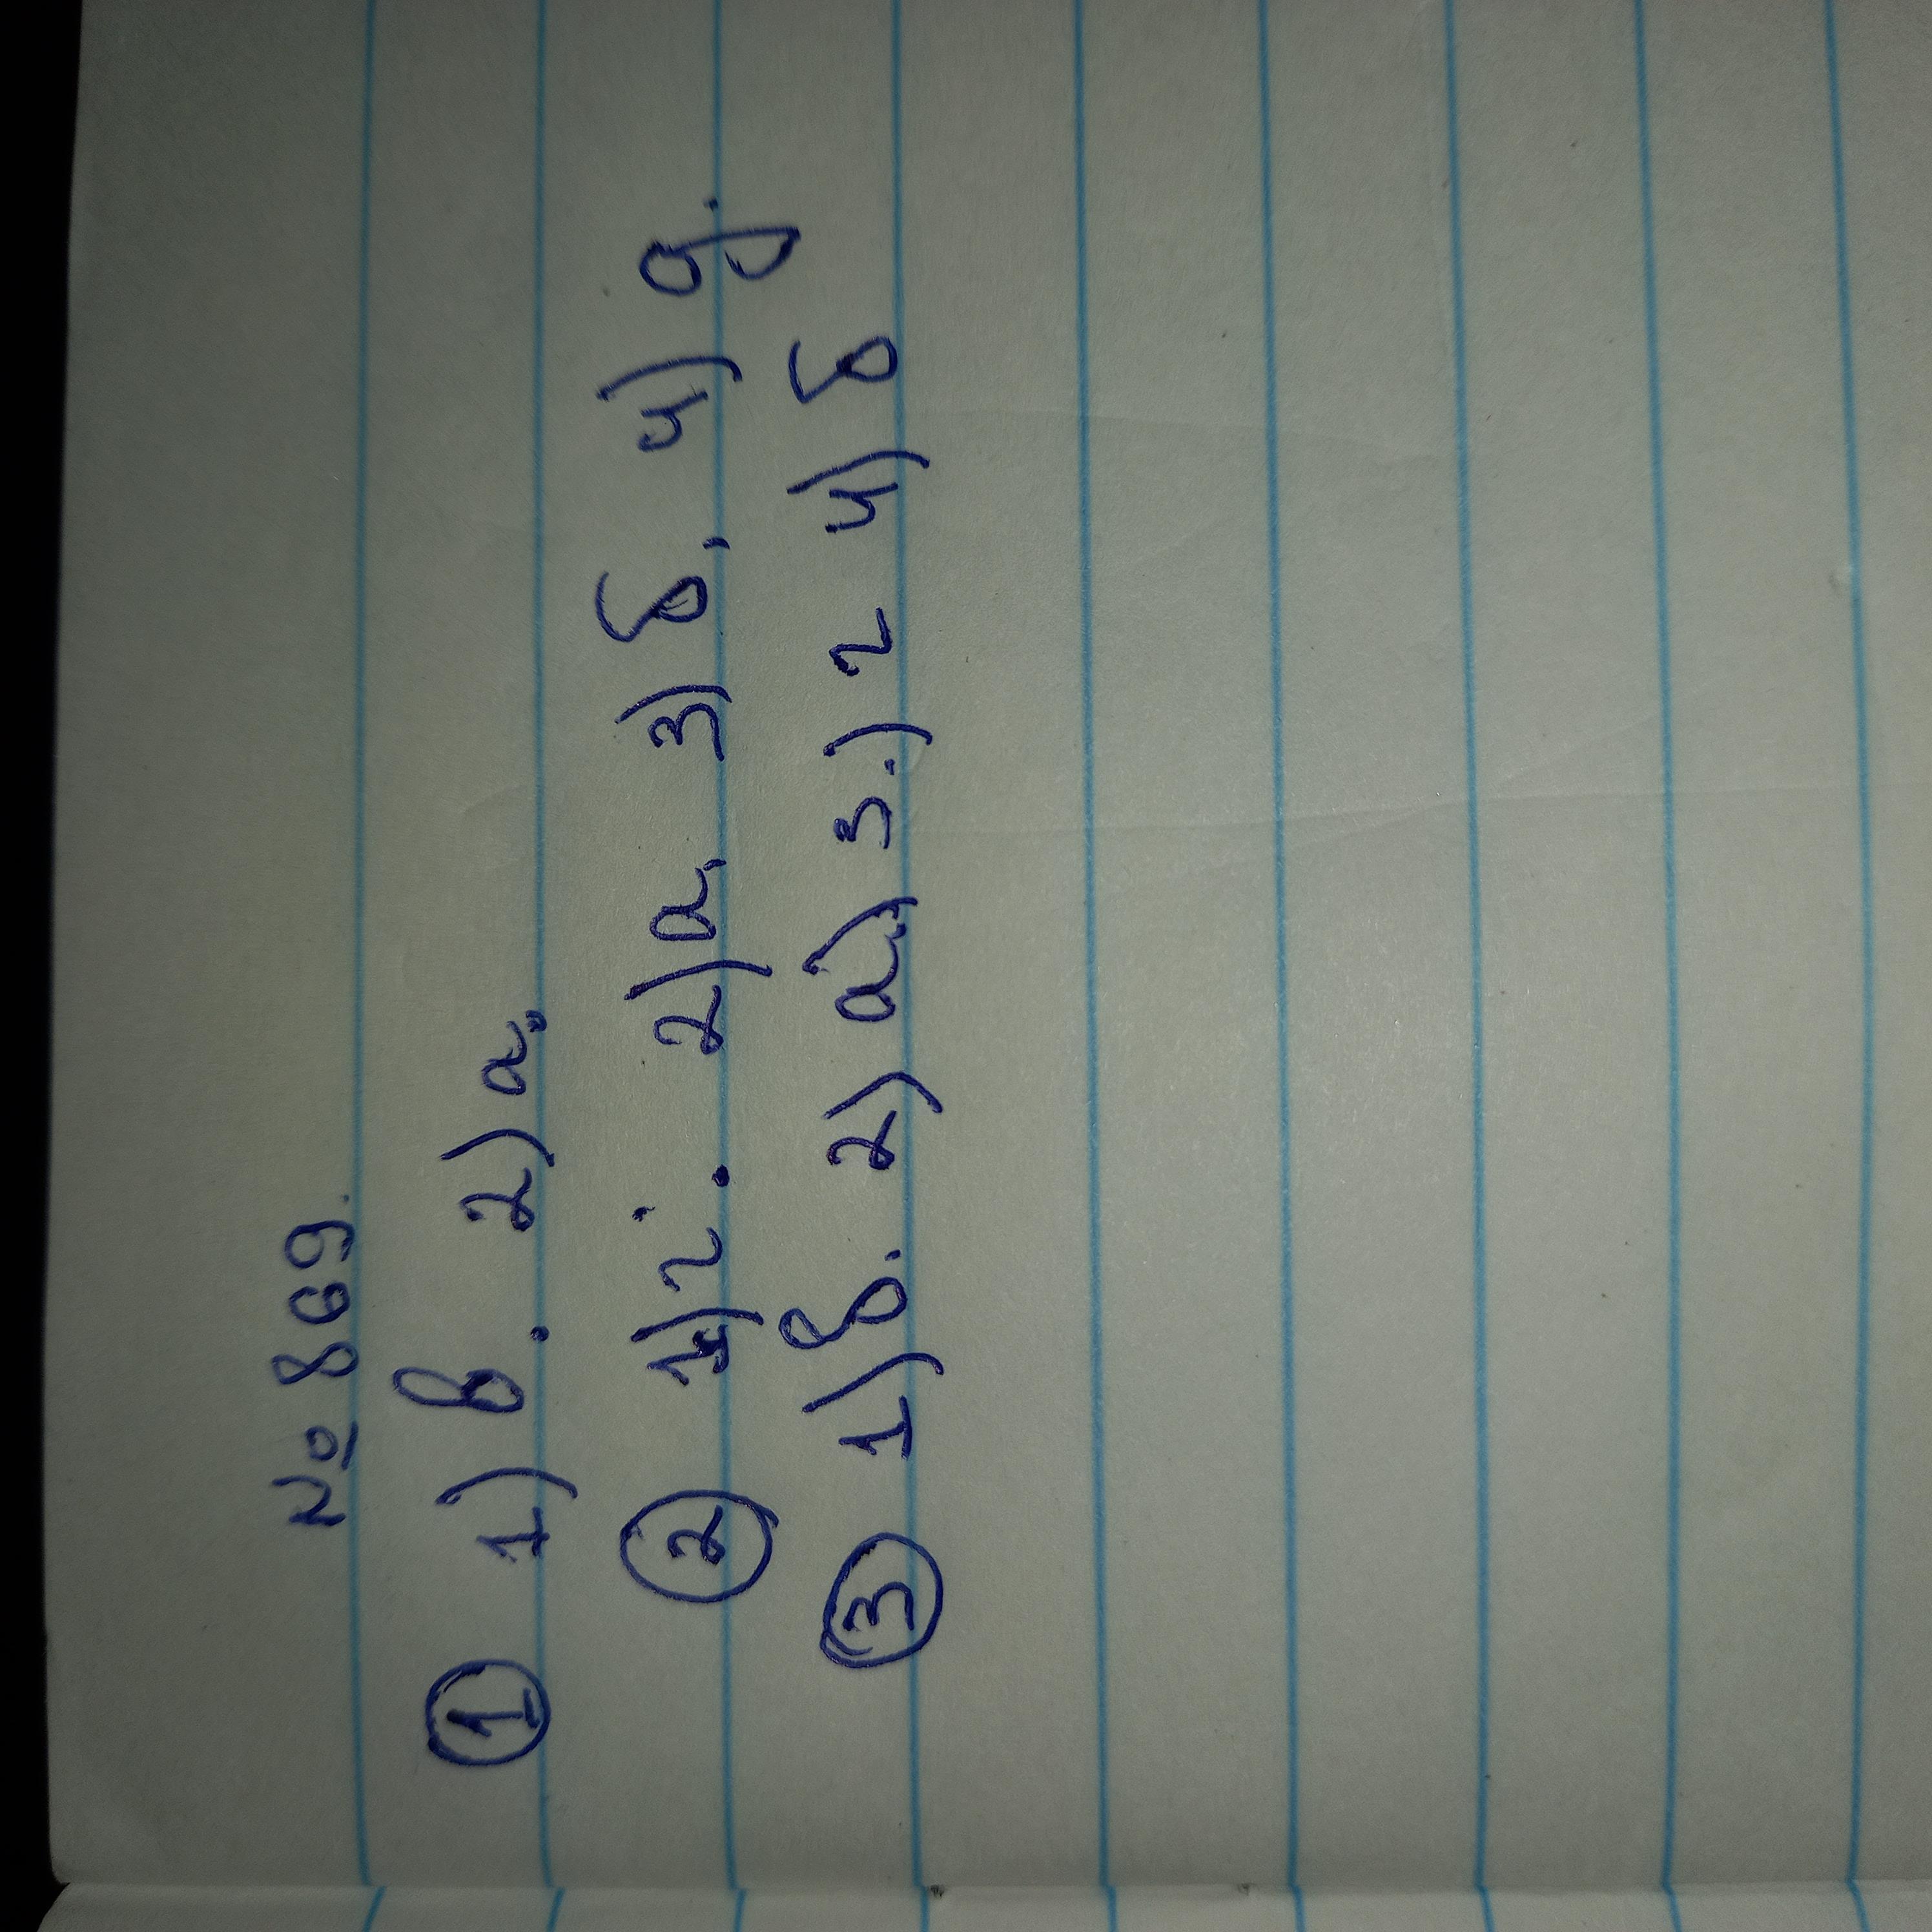 № 869.
① 1) в. 2) а.
② 1) г. 2) а, 3) б, 4) д.
③ 1) в. 2) а), 3.) г 4) б